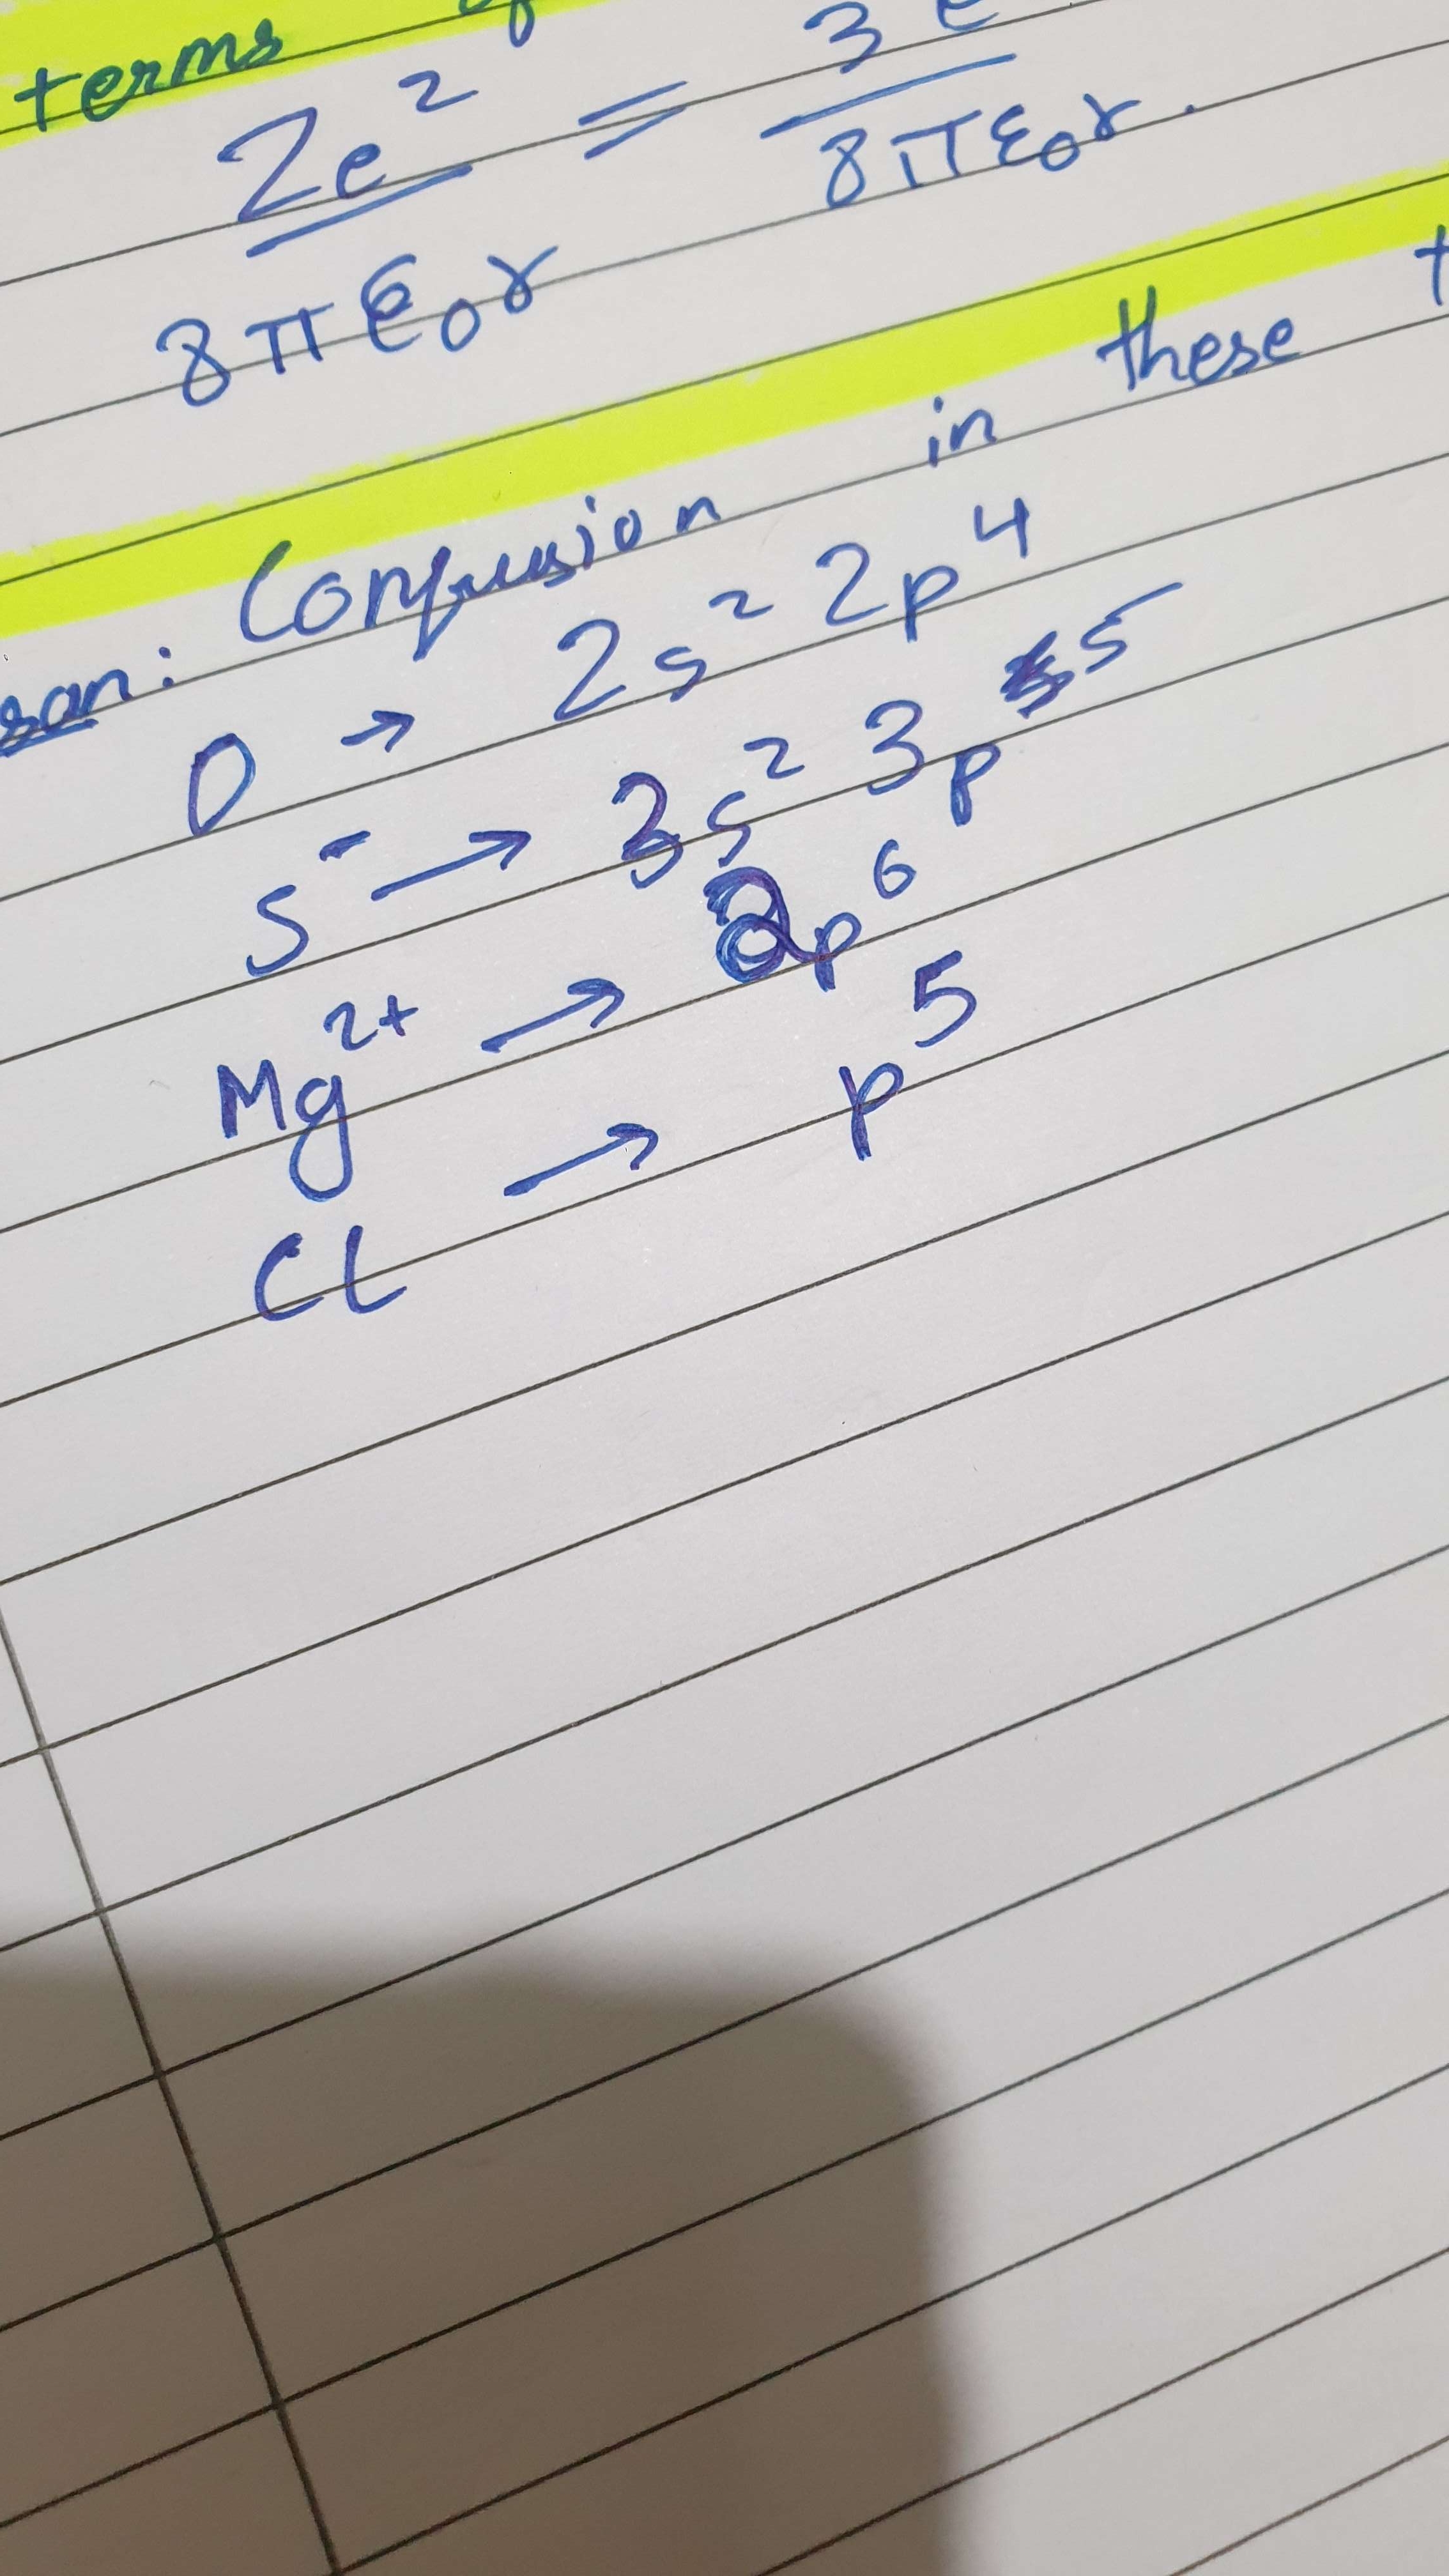 terms
2e² = 3e
8πε₀r 8πε₀r.
Confusion in these
O → 2s² 2p⁴
S⁻ → 3s² 3p⁵
Mg²⁺ → 2p⁶
Cl → p⁵